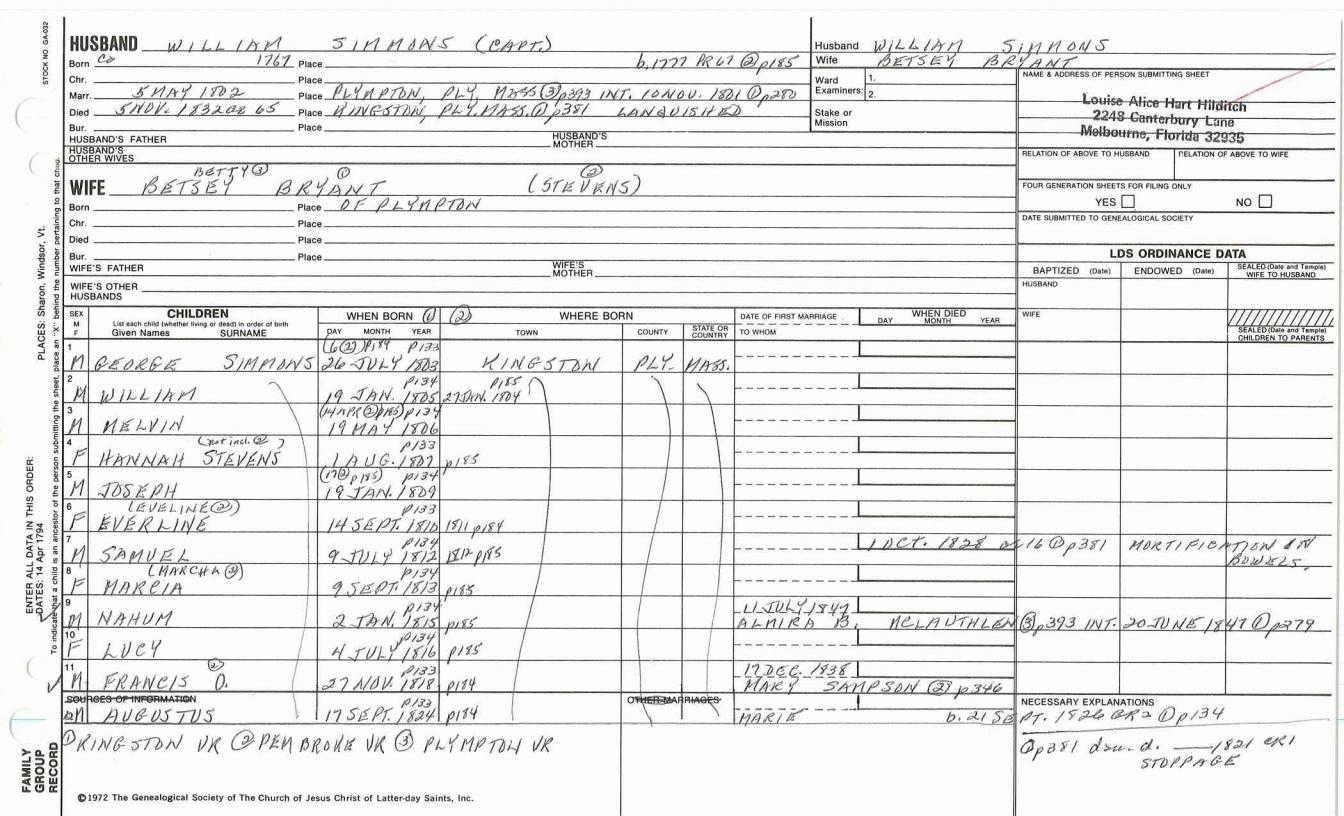 STOCK NO GA-032
HUSBAND WILLIAM SIMMONS (CAPT.)
Born Ca 1767 Place b. 1777 PR67 ② p185
Chr. Place
Marr. 5 MAY 1802 Place PLYMPTON, PLY, MASS ③ p393 INT. 10 NOV. 1801 ① p280
Died 5 NOV. 1832 ae 65 Place KINGSTON, PLY. MASS. ① p381 LANQUISHED
Bur. Place
HUSBAND'S FATHER HUSBAND'S MOTHER
HUSBAND'S OTHER WIVES
Husband WILLIAM SIMMONS
Wife BETSEY BRYANT
Ward Examiners: 1. 2.
Stake or Mission
NAME & ADDRESS OF PERSON SUBMITTING SHEET
Louise Alice Hart Hilditch
2248 Canterbury Lane
Melbourne, Florida 32935
RELATION OF ABOVE TO HUSBAND RELATION OF ABOVE TO WIFE
FOUR GENERATION SHEETS FOR FILING ONLY
YES NO
DATE SUBMITTED TO GENEALOGICAL SOCIETY
BETTY ③ ① ②
WIFE BETSEY BRYANT (STEVENS)
Born Place OF PLYMPTON
Chr. Place
Died Place
Bur. Place
WIFE'S FATHER WIFE'S MOTHER
WIFE'S OTHER HUSBANDS
LDS ORDINANCE DATA
BAPTIZED (Date) ENDOWED (Date) SEALED (Date and Temple) WIFE TO HUSBAND
HUSBAND
WIFE
SEALED (Date and Temple) CHILDREN TO PARENTS
SEX M F CHILDREN WHEN BORN ① ② WHERE BORN DATE OF FIRST MARRIAGE WHEN DIED
List each child (whether living or dead) in order of birth
Given Names SURNAME DAY MONTH YEAR TOWN COUNTY STATE OR COUNTRY TO WHOM DAY MONTH YEAR
(6 ②) p184 p133
1 M GEORGE SIMMONS 26 JULY 1803 KINGSTON PLY. MASS.
p134 p185
2 M WILLIAM 19 JAN. 1805 27 JAN. 1804
(14 APR ② p185) p134
3 M MELVIN 19 MAY 1806
(not incl. ②) p133
4 F HANNAH STEVENS 1 AUG. 1807 p185
(17 ② p185) p134
5 M JOSEPH 19 JAN. 1809
(EVELINE ②) p133
6 F EVERLINE 14 SEPT. 1810 1811 p184
p134
7 M SAMUEL 9 JULY 1812 1812 p185 1 OCT. 1828 ae 16 ① p381 MORTIFICATION IN BOWELS.
(MARCHA ②) p134
8 F MARCIA 9 SEPT. 1813 p185
p134 11 JULY 1847
9 M NAHUM 2 JAN. 1815 p185 ALMIRA B. MCLAUTHLEN ③ p393 INT. 20 JUNE 1847 ① p279
p134
10 F LUCY 4 JULY 1816 p185
② p133 17 DEC. 1838
11 M FRANCIS O. 27 NOV. 1818 p184 MARY SAMPSON ② p346
SOURCES OF INFORMATION p133 OTHER MARRIAGES NECESSARY EXPLANATIONS
12 M AUGUSTUS 17 SEPT. 1824 p184 MARIE b. 21 SEPT. 1826 GR2 ① p134
① KINGSTON VR ② PEMBROKE VR ③ PLYMPTON VR
① p381 dau. d. — 1821 CR1
STOPPAGE
©1972 The Genealogical Society of The Church of Jesus Christ of Latter-day Saints, Inc.
FAMILY GROUP RECORD
ENTER ALL DATA IN THIS ORDER:
DATES: 14 Apr 1794
PLACES: Sharon, Windsor, Vt.
To indicate that a child is an ancestor of the person submitting the sheet, place an "X" behind the number pertaining to that child.